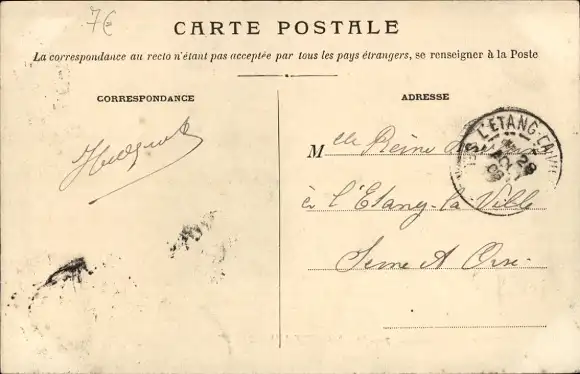 7€
CARTE POSTALE
La correspondance au recto n'étant pas acceptée par tous les pays étrangers, se renseigner à la Poste
CORRESPONDANCE
ADRESSE
L'ETANG-LA-VILLE
28
AOUT
Mlle Reine
à l'Etang-la-Ville
Seine & Oise